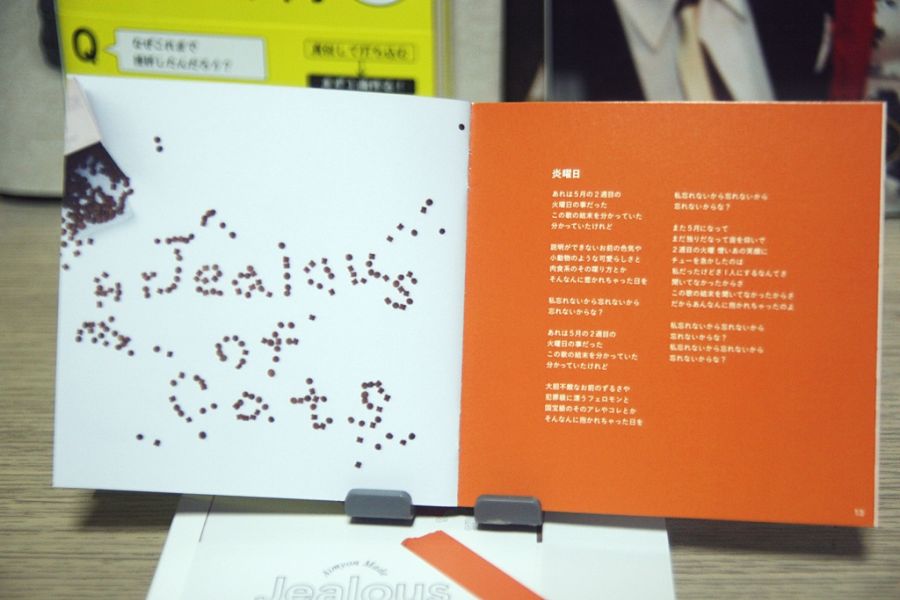 Q
なぜこれまで
理解しただろう?
Jealous
of
Cats
炎曜日
あれは5月の2週目の
火曜日の事だった
この歌の結末を分かっていた
分かっていたけれど
説明ができないお前の色気や
小動物のような可愛らしさと
肉食系のその喋り方とか
そんなんに惹かれちゃった日を
私忘れないから忘れないから
忘れないからな?
あれは5月の2週目の
火曜日の事だった
この歌の結末を分かっていた
分かっていたけれど
大胆不敵なお前のずるさや
犯罪級に漂うフェロモンと
国宝級のそのアレやコレとか
そんなんに抱かれちゃった日を
私忘れないから忘れないから
忘れないからな?
また5月になって
まだ独りだなって宙を仰いで
2週目の火曜 憎いあの笑顔に
チューを急かしたのは
私だったけどさ!人にするなんてさ
聞いてなかったからさ
この歌の結末を聞いてなかったからさ
だからあんなんに抱かれちゃったのよ
私忘れないから忘れないから
忘れないからな?
私忘れないから忘れないから
忘れないからな?
Aimyon Made
Jealous